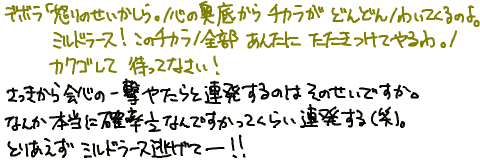 デボラ「怒りのせいかしら。/心の奥底から チカラが どんどん/わいてくるのよ。
ミルドラース！このチカラ/全部 あんたに たたきつけてやるわ。/
カクゴして 待ってなさい！
さっきから会心の一撃やたらと連発するのはそのせいですか。
なんか本当に確率2なんですかってくらい連発する(笑)。
とりあえず ミルドラース逃げてー!!